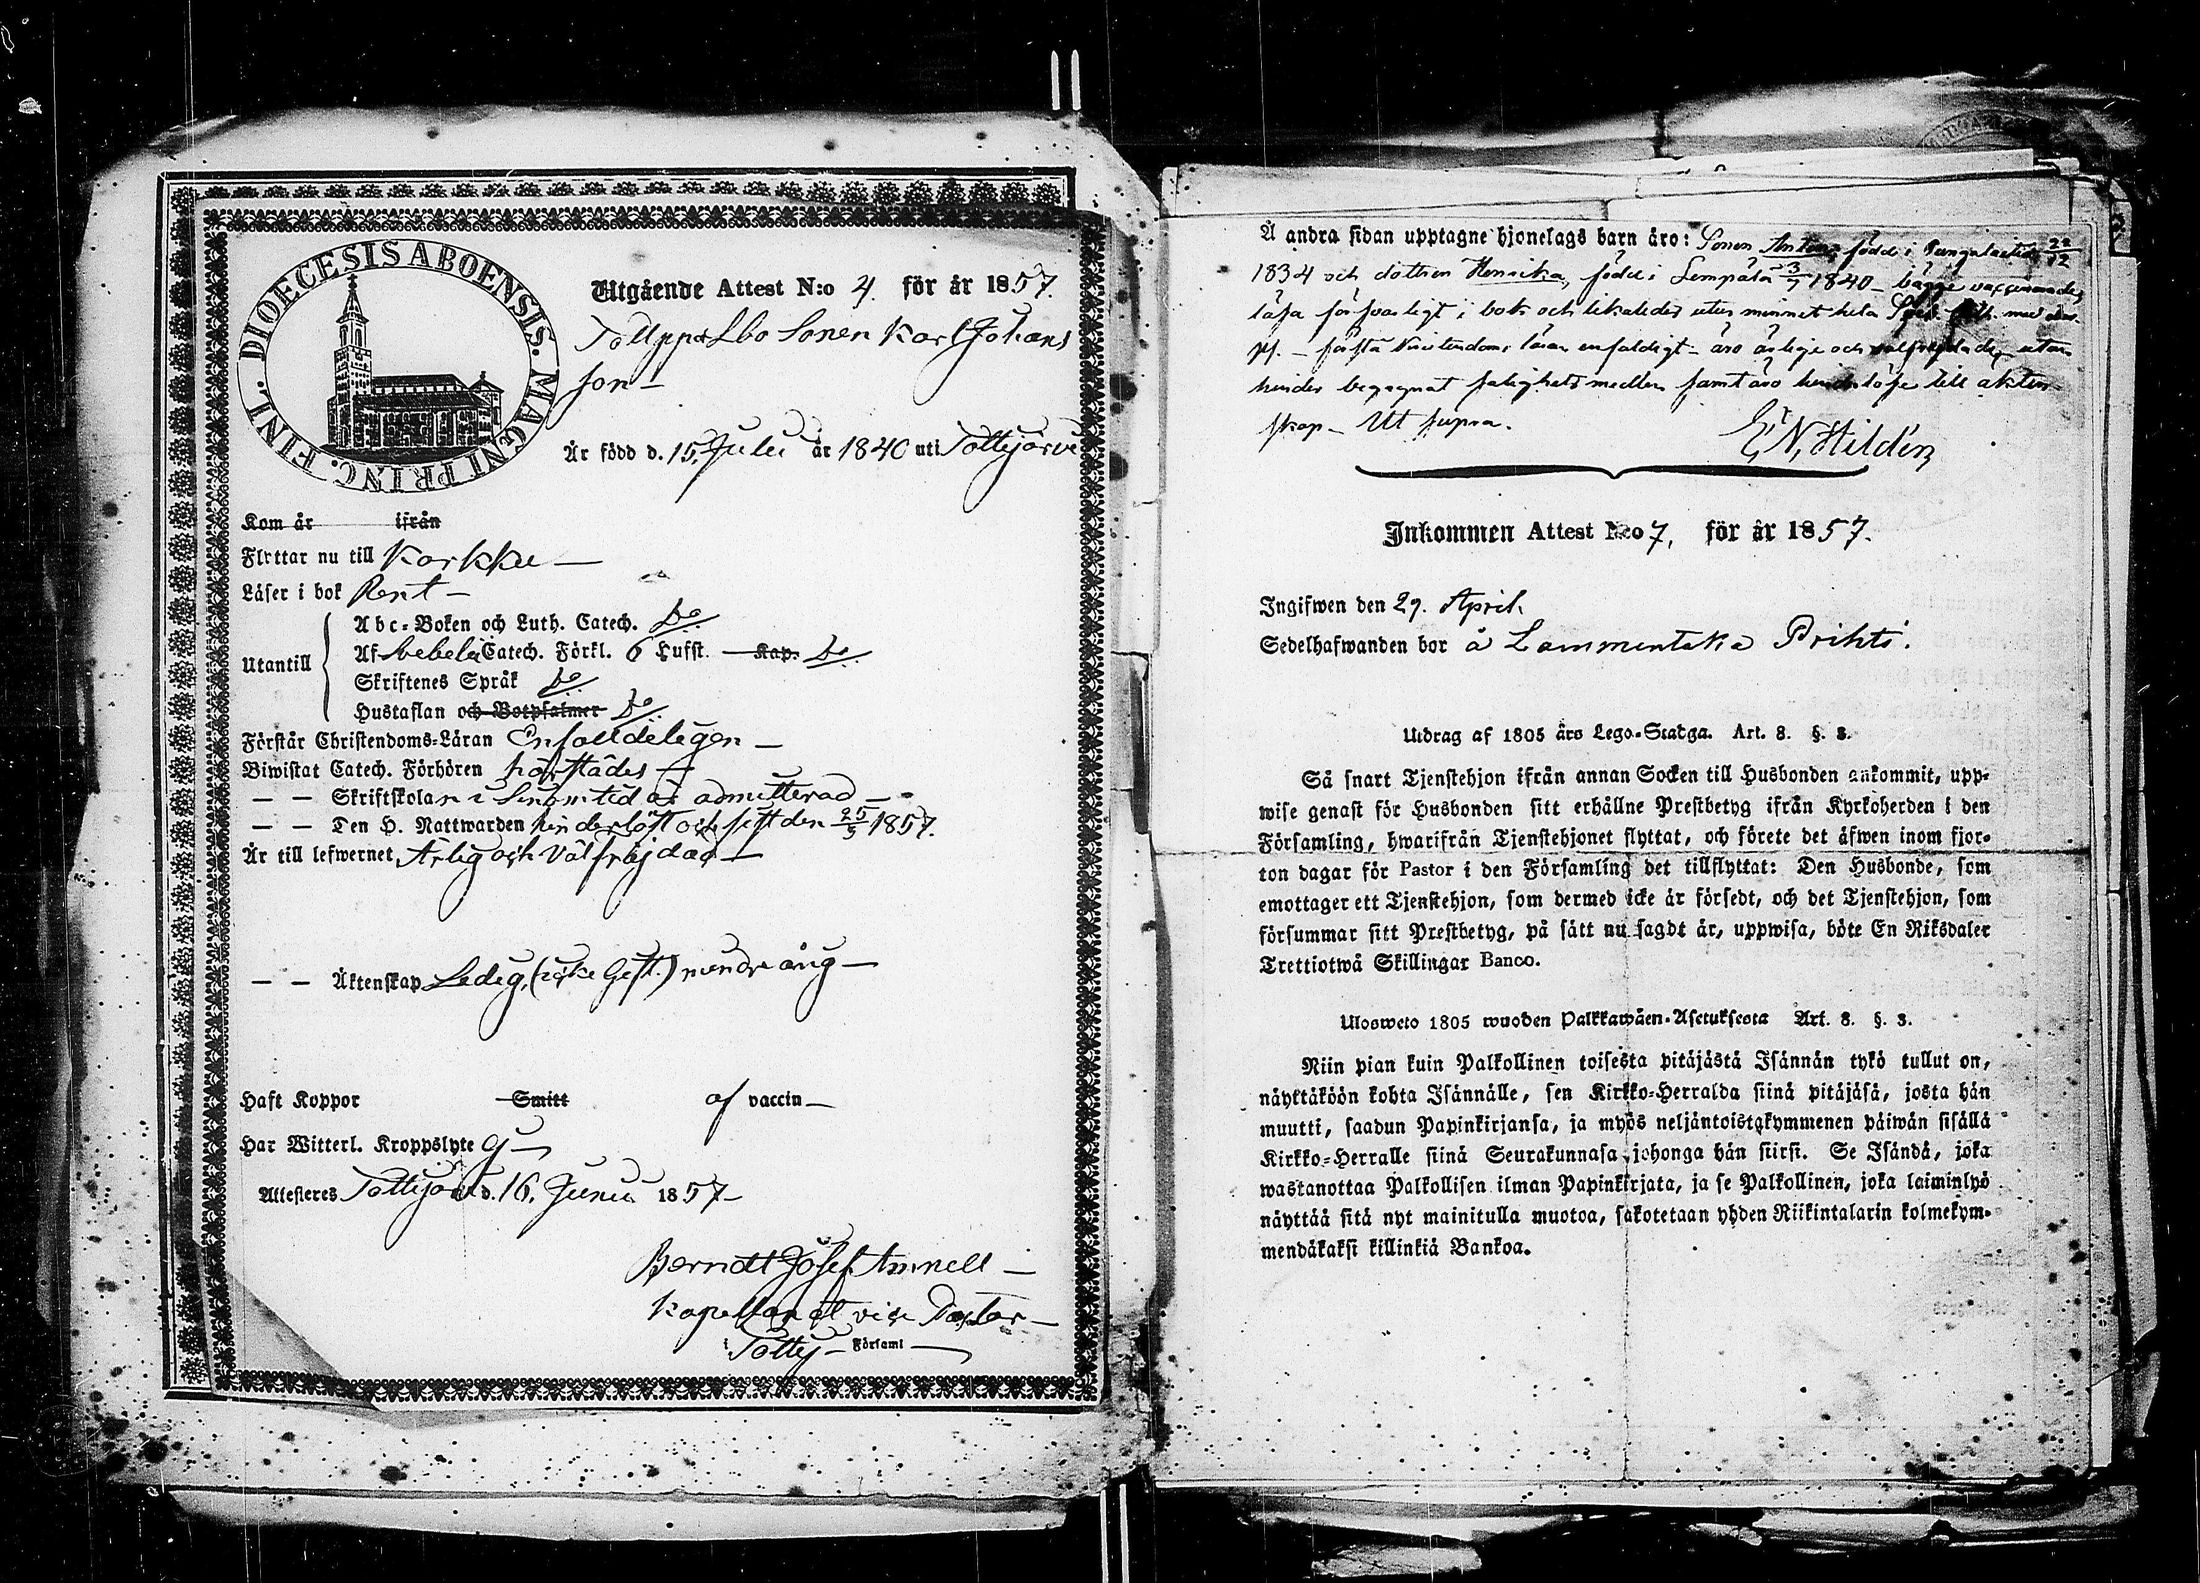 DIOECESIS ABOENSIS. MAGNI PRINC. FINL.
Utgående Attest N:o 4. för år 1857.
Sonen Karl Johans
son
Är född d. 15. Juli år 1840 uti Tottijärvi
Kom år ifrån
Flyttar nu till Karkku
Läser i bok Rent
Utantill
Abc-Boken och Luth. Catech. do
Af Svebelii Catech. Förkl. 6 Hufst. Kap. do
Skriftenes Språk do
Hustaflan och Botpsalmer do
Förstår Christendoms-Läran Enfaldeligen
Biwistat Catech. Förhören härstädes
— — Skriftskolan i sinom tid är admitterad
— — Den H. Nattwarden hinderlöst och sist den 25/5 1857.
Är till lefwernet Ärlig och Välfräjdad
— — Äktenskap Ledig, (icke Gift.) mindreårig
Haft Koppor Smitt af vaccin
Har Witterl. Kroppslyte Ej
Attesteras Tottijärvi d. 16. Junii 1857
Berndt Josef Amnell
Kapellan et vice Pastor
i Tottij Församl
Å andra sidan upptagne hjonelags barn äro: Sonen Anton, född i 22/12
1834 och dottren Henrika, född i Lempälä 3/7 1840 — bägge vaccinerade,
läsa försvarligt i bok och likaledes utur minnet hela
förstå Kristendoms läran enfaldigt — äro ärlige och välfrejdade, utan
hinder begagnat salighetsmedlen samt äro hinderlöse till äkten-
skap — Ut supra.
E. N. Hildén
Inkommen Attest N:o 7, för år 1857.
Ingifwen den 29. April.
Sedelhafwanden bor å Lammentaka Prihti.
Utdrag af 1805 års Lego-Stadga. Art. 8. §. 3.
Så snart Tjenstehjon ifrån annan Socken till Husbonden ankommit, upp-
wise genast för Husbonden sitt erhållne Prestbetyg ifrån Kyrkoherden i den
Församling, hwarifrån Tjenstehjonet flyttat, och förete det äfwen inom fjor-
ton dagar för Pastor i den Församling det tillflyttat: Den Husbonde, som
emottager ett Tjenstehjon, som dermed icke är försedt, och det Tjenstehjon, som
försummar sitt Prestbetyg, på sätt nu sagdt är, uppwisa, böte En Riksdaler
Trettiotwå Skillingar Banco.
Ulosweto 1805 wuoden Palkkawäen-Asetuksesta Art. 8. §. 3.
Niin pian kuin Palkollinen toisesta pitäjästä Isännän tykö tullut on,
näyttäköön kohta Isännälle, sen Kirkko-Herralda siinä pitäjäsä, josta hän
muutti, saadun Papinkirjansa, ja myös neljäntoistakymmenen päiwän sisällä
Kirkko-Herralle siinä Seurakunnasa, johonga hän siirsi. Se Isändä, joka
wastanottaa Palkollisen ilman Papinkirjata, ja se Palkollinen, joka laiminlyö
näyttää sitä nyt mainitulla muotoa, sakotetaan yhden Riikintalarin kolmekym-
mendäkaksi killinkiä Bankoa.